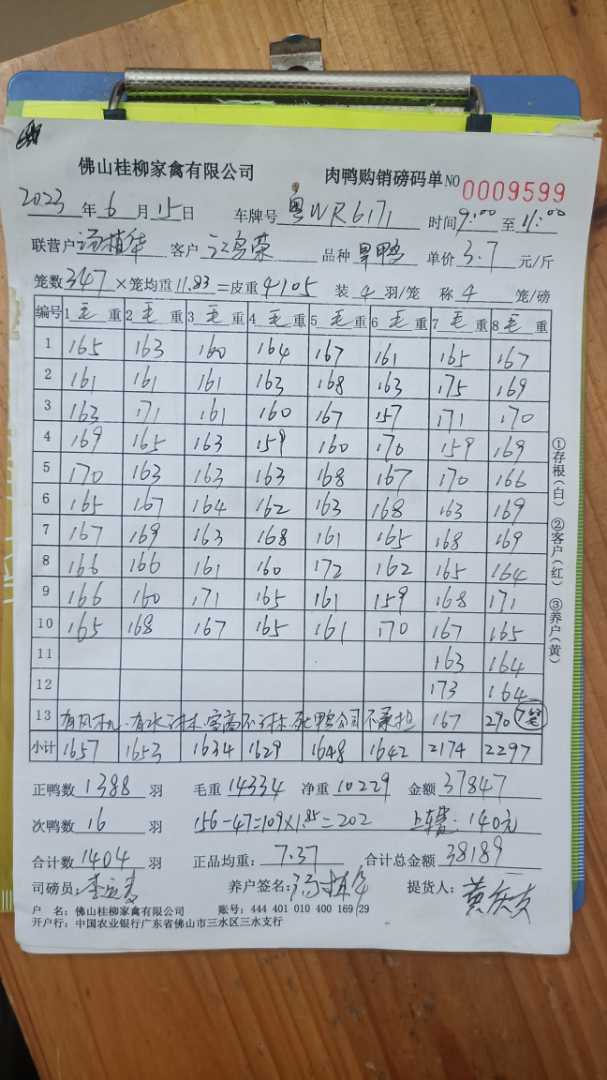 佛山桂柳家禽有限公司 肉鸭购销磅码单 NO 0009599
2023 年 6 月 15 日 车牌号 粤WR6171 时间 9:00 至 11:00
联营户 汤植华 客户 江乌荣 品种 旱鸭 单价 3.7 元/斤
笼数 347 ×笼均重 11.83 =皮重 4105 装 4 羽/笼 称 4 笼/磅
编号 1 毛 重 2 毛 重 3 毛 重 4 毛 重 5 毛 重 6 毛 重 7 毛 重 8 毛 重
1 165 163 160 164 167 161 165 167
2 161 161 161 163 168 163 175 169
3 163 171 161 160 167 157 171 170
4 169 165 163 159 160 170 159 169
5 170 163 163 163 168 167 170 166
6 165 167 164 162 163 168 163 169
7 167 169 163 168 161 165 168 169
8 166 166 161 160 172 162 165 164
9 166 160 171 165 161 159 168 171
10 165 168 167 165 161 170 167 165
11 163 164
12 173 164
13 有风机.有水 死鸭公司不承担 167 290 7笼
小计 1657 1653 1634 1629 1648 1642 2174 2297
正鸭数 1388 羽 毛重 14334 净重 10229 金额 37847
次鸭数 16 羽 156-47=109×1.85=202 上车费:140元
合计数 1404 羽 正品均重: 7.37 合计总金额 38189
司磅员: 养户签名: 汤植华 提货人:
户 名: 佛山桂柳家禽有限公司 账号: 444 401 010 400 169 29
开户行: 中国农业银行广东省佛山市三水区三水支行
①存根(白) ②客户(红) ③养户(黄)